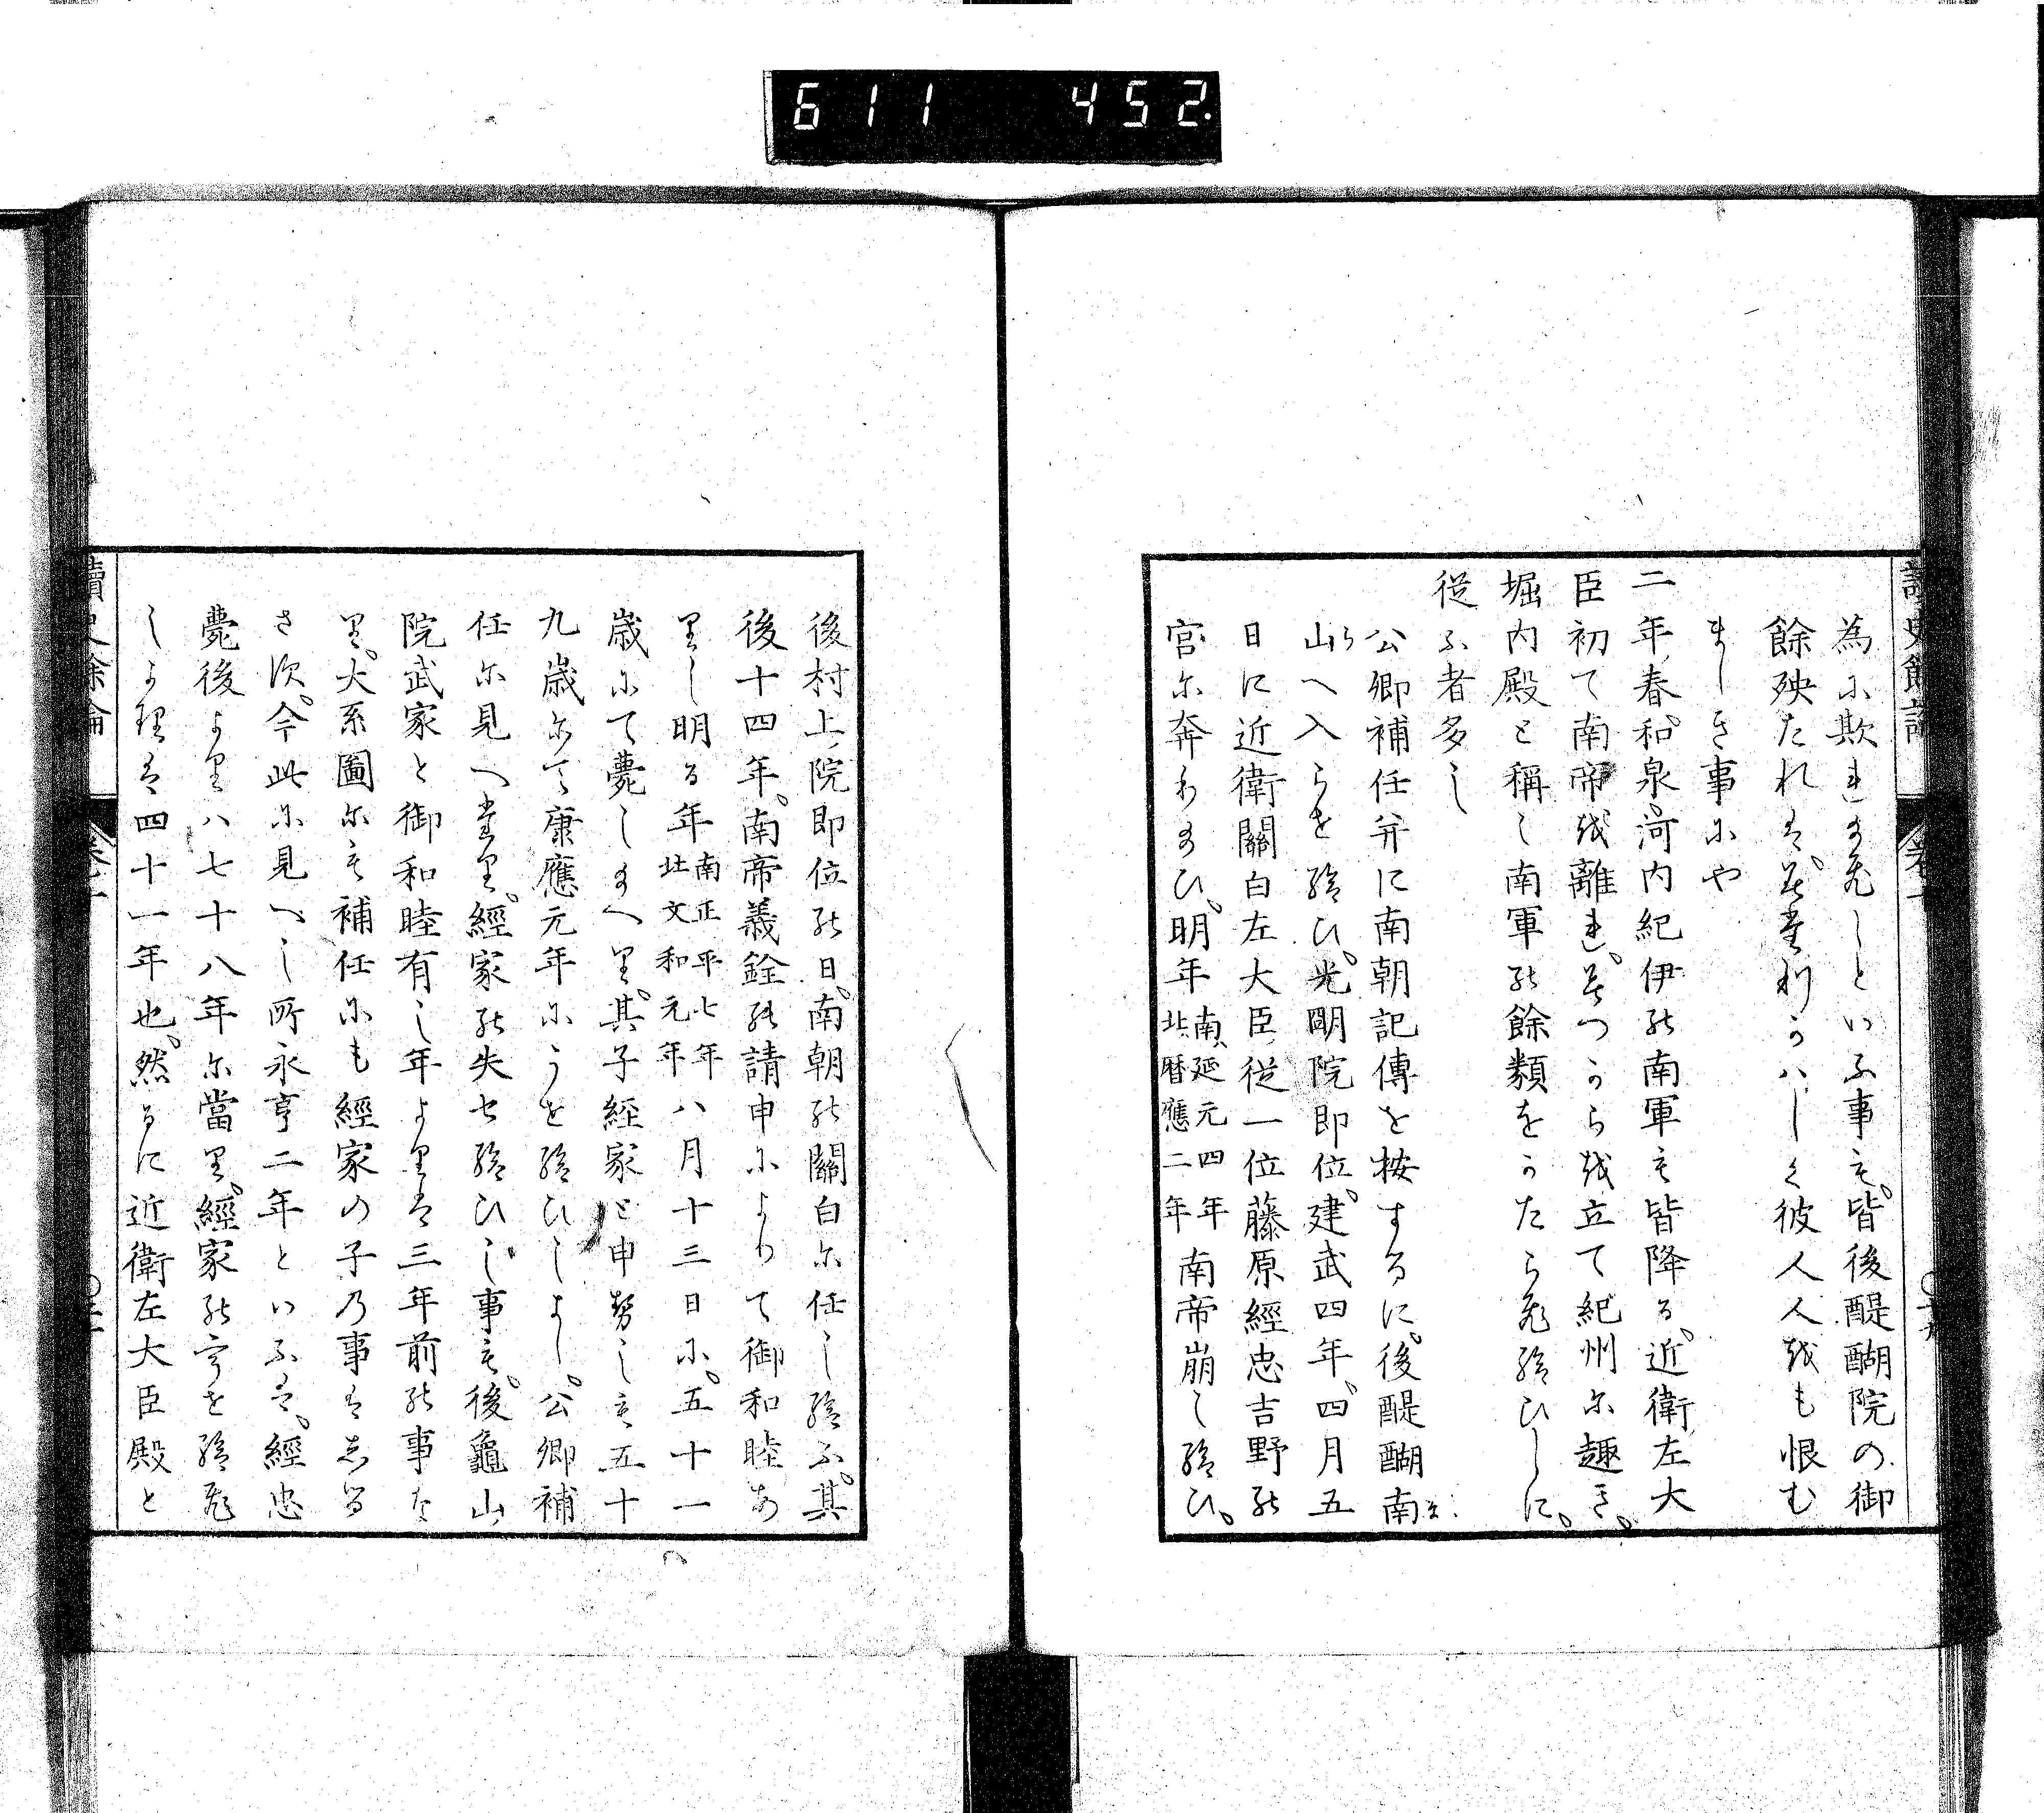 611 452.
爲に欺れまいしといふ事も。皆後醍醐院の御
餘殃たれは。其
彼人人をも恨む
ましき事にや
二年春。和泉。河内紀伊の南軍も皆降る。近衛左大
臣初て南帝を離れ。みつから立て紀州に趣き。
堀内殿と稱し南軍の餘類をかたらひ給ひしに。
從ふ者多し
公卿補任并に南朝記傳を按するに。後醍醐南
山へ入らせ給ひ。光明院即位。建武四年。四月五
日に近衛關白左大臣從一位藤原經忠吉野の
宮に奔りまひ。明年南延元四年北暦應二年南帝崩し給ひ。
後村上院即位の日。南朝の關白に任し給ふ。其
後十四年。南帝義銓の請申によりて御和睦あ
りし明る年南正平七年北文和元年八月十三日に。五十一
歳にて薨しまへり。其子經家と申せしも五十
九歳にて康應元年にうせ給ひしよし。公卿補
任に見へたり。經家の失せ給ひし事も。後龜山
院武家と御和睦有し年よりは三年前の事な
り。大系圖にも補任にも經家の子乃事はしる
さす。今此に見へし所永亨二年といふは。經忠
薨後より八七十八年に當り。經家の
しよりは四十一年也。然るに近衛左大臣殿と
讀史餘論